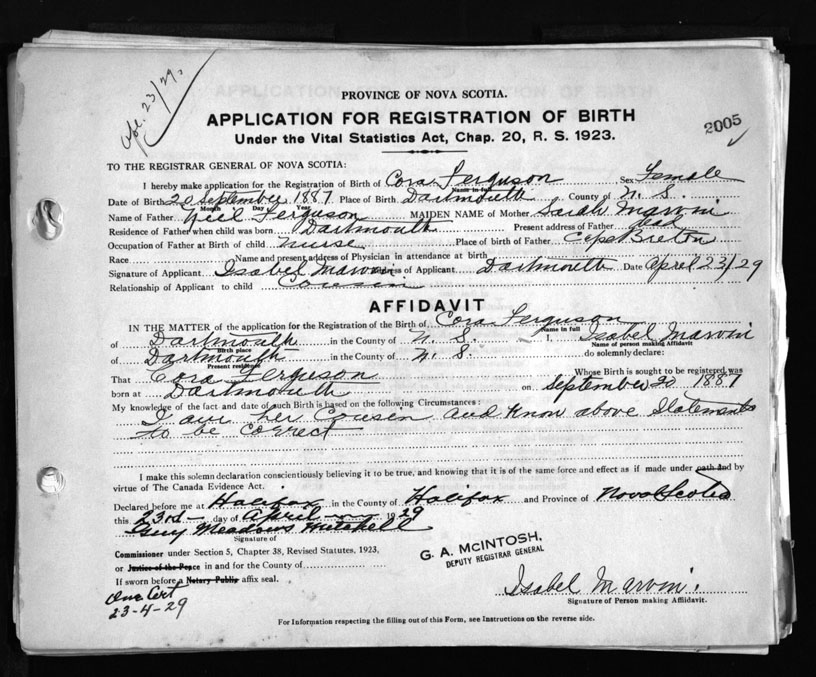 Apr. 23/29.
PROVINCE OF NOVA SCOTIA.
APPLICATION FOR REGISTRATION OF BIRTH
2005
Under the Vital Statistics Act, Chap. 20, R. S. 1923.
TO THE REGISTRAR GENERAL OF NOVA SCOTIA:
I hereby make application for the Registration of Birth of Cora Ferguson Sex Female
Name in full
Date of Birth 20 September 1887 Place of Birth Dartmouth County of N. S.
Month Day Year
Name of Father Neil Ferguson MAIDEN NAME of Mother Sarah Marvin
Residence of Father when child was born Dartmouth Present address of Father
Occupation of Father at Birth of child Place of Birth of Father Cape Breton
Race Name and present address of Physician in attendance at birth
Signature of Applicant Isabel Marvin Address of Applicant Dartmouth Date April 23/29
Relationship of Applicant to child Cousin
AFFIDAVIT
IN THE MATTER of the application for the Registration of the Birth of Cora Ferguson
Name in full
of Dartmouth in the County of N. S. I, Isabel Marvin
Birth place Name of person making Affidavit
of Dartmouth in the County of N. S. do solemnly declare:
Present residence
That Cora Ferguson Whose Birth is sought to be registered was
born at Dartmouth on September 20 1887
My knowledge of the fact and date of such Birth is based on the following Circumstances:
I am her Cousin and know above Statements
to be correct
I make this solemn declaration conscientiously believing it to be true, and knowing that it is of the same force and effect as if made under oath and by
virtue of The Canada Evidence Act.
Declared before me at Halifax in the County of Halifax and Province of Nova Scotia
this 23rd day of April 1929
Guy Meadows Mitchell
Signature of
Commissioner under Section 5, Chapter 38, Revised Statutes, 1923,
G. A. McINTOSH,
DEPUTY REGISTRAR GENERAL
or Justice of the Peace in and for the County of
If sworn before a Notary Public affix seal.
Isabel Marvin.
Signature of Person making Affidavit.
One Cert
23-4-29
For Information respecting the filling out of this Form, see Instructions on the reverse side.